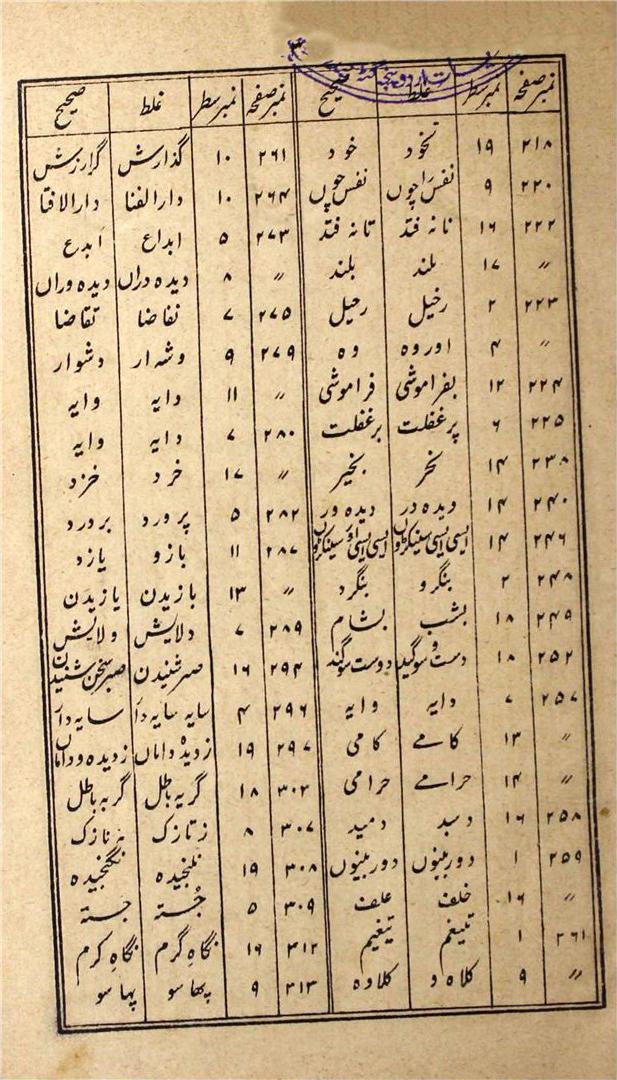 نمبر صفحہ نمبر سطر غلط صحیح نمبر صفحہ نمبر سطر غلط صحیح
۲۱۸ ۱۹ تخود خود ۲۶۱ ۱۰ گذارش گزارش
۲۲۰ ۹ نفس اچوں نفس چوں ۲۶۴ ۱۰ دارالفنا دارالافتا
۲۲۲ ۱۶ نانہ فتد تانہ فتد ۲۷۳ ۵ ابداع ابدع
〃 ۱۷ بلند بلند 〃 ۸ دیدہ دراں دیدہ وراں
۲۲۳ ۲ رخیل رحیل ۲۷۵ ۷ نفاضا تقاضا
〃 ۴ اور وہ وہ ۲۷۹ ۹ وشہ ار دشوار
۲۲۴ ۱۲ بفراموشی فراموشی 〃 ۱۱ دایہ وایہ
۲۲۵ ۶ پر غفلت بر غفلت ۲۸۰ ۷ دایہ وایہ
۲۳۸ ۱۴ بخر بخیر 〃 ۱۷ خرد خزد
۲۴۰ ۱۴ ویدہ در دیدہ ور ۲۸۲ ۵ پرورد برورد
۲۴۶ ۱۴ ایسی ایسی سینکڑوں ایسی ایسی اور سینکڑوں ۲۸۷ ۱۱ بازو یازد
۲۴۸ ۲ بنگرو بنگرد 〃 ۱۳ بازیدن یازیدن
۲۴۹ ۱۸ بشب بشام ۲۸۹ ۷ دلایش ولایش
۲۵۲ ۱۸ دست و سوگید دوست سوگند ۲۹۴ ۱۶ صر شنیدن صبر سخن شنیدن
۲۵۷ ۷ دایہ وایہ ۲۹۶ ۴ سایہ سایہ دار سایہ دار
〃 ۱۳ کامے کامی ۲۹۷ ۱۹ زدیدہ داماں زدیدہ و داماں
〃 ۱۴ حرامے حرامی ۳۰۲ ۱۸ گریہ باطل گربہ باطل
۲۵۸ ۱۶ دسید دمید ۳۰۷ ۸ زتازک بہ نازک
۲۵۹ ۱ دور بینوں دور بینوں ۳۰۸ ۱۹ نگنجیدہ
〃 ۱۶ خلف علف ۳۰۹ ۵ جُستہ جستہ
۲۶۱ ۱ تیغیم ۳۱۲ ۱۶ نگاہِ گرم نگاہِ کرم
〃 ۹ کلاہ و کلاوہ ۳۱۳ ۹ پھا سو پہا سو